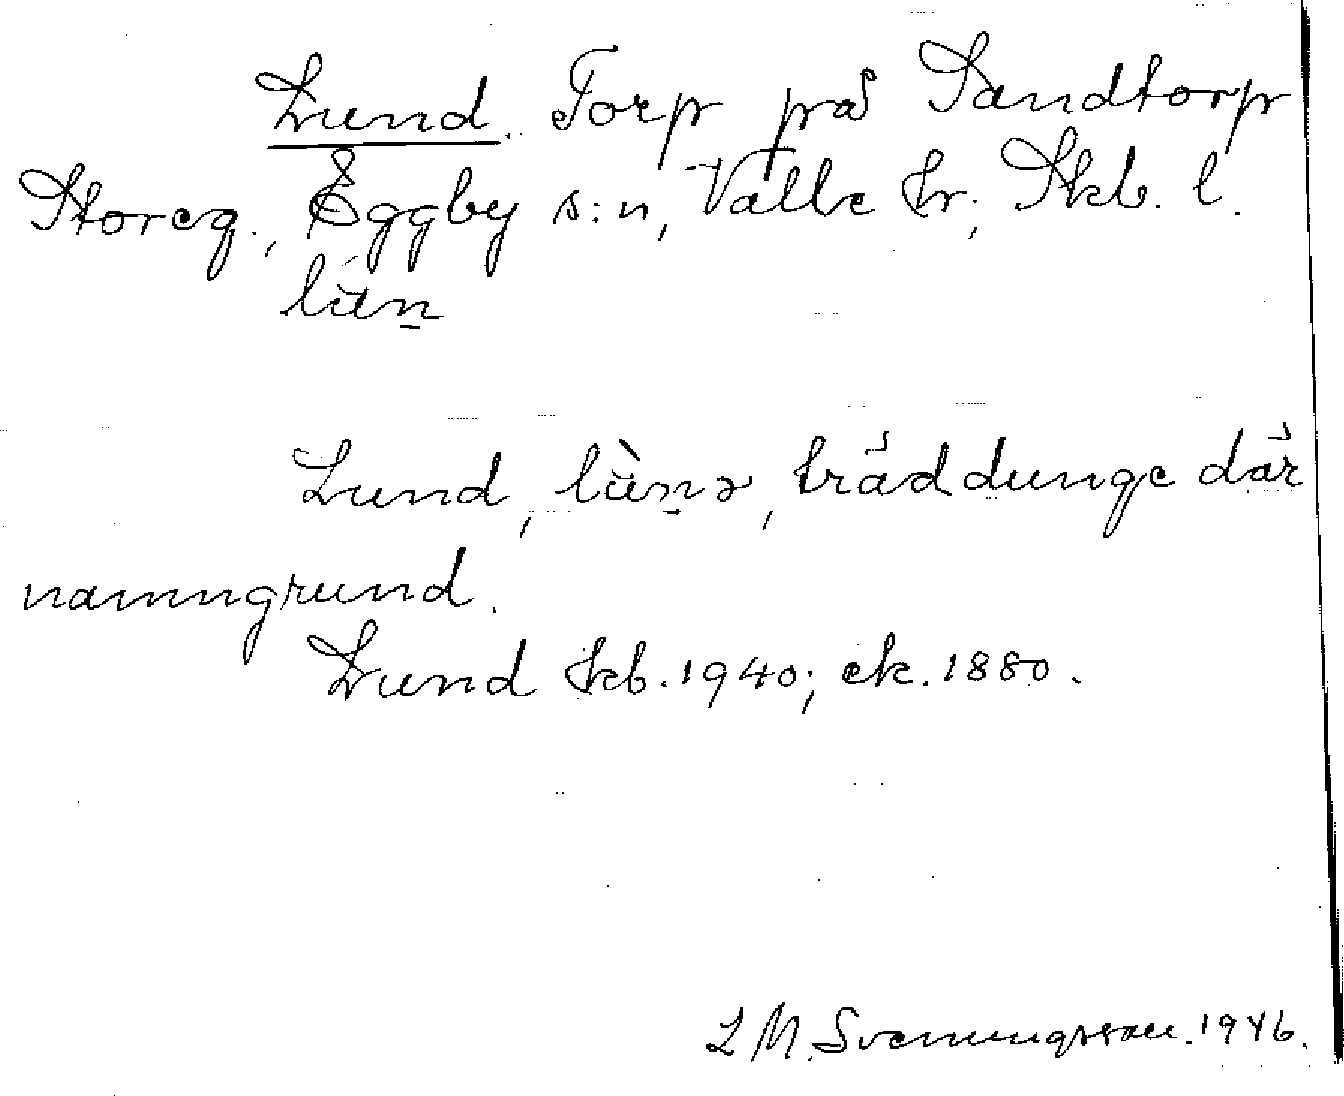 Lund. Torp på Sandtorp
Storeg., Eggby s:n, Valle hr; Skb. l.
lùn̠
Lund, lùn̠ə, träddunge där
namngrund.
Lund Jkb. 1940; ek. 1880.
L M. Svenungsson. 1946.